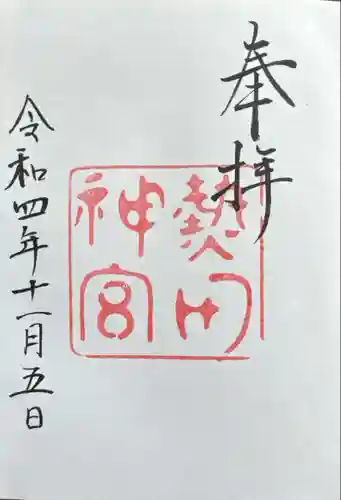 奉拝
熱田
神宮
令和四年十一月五日